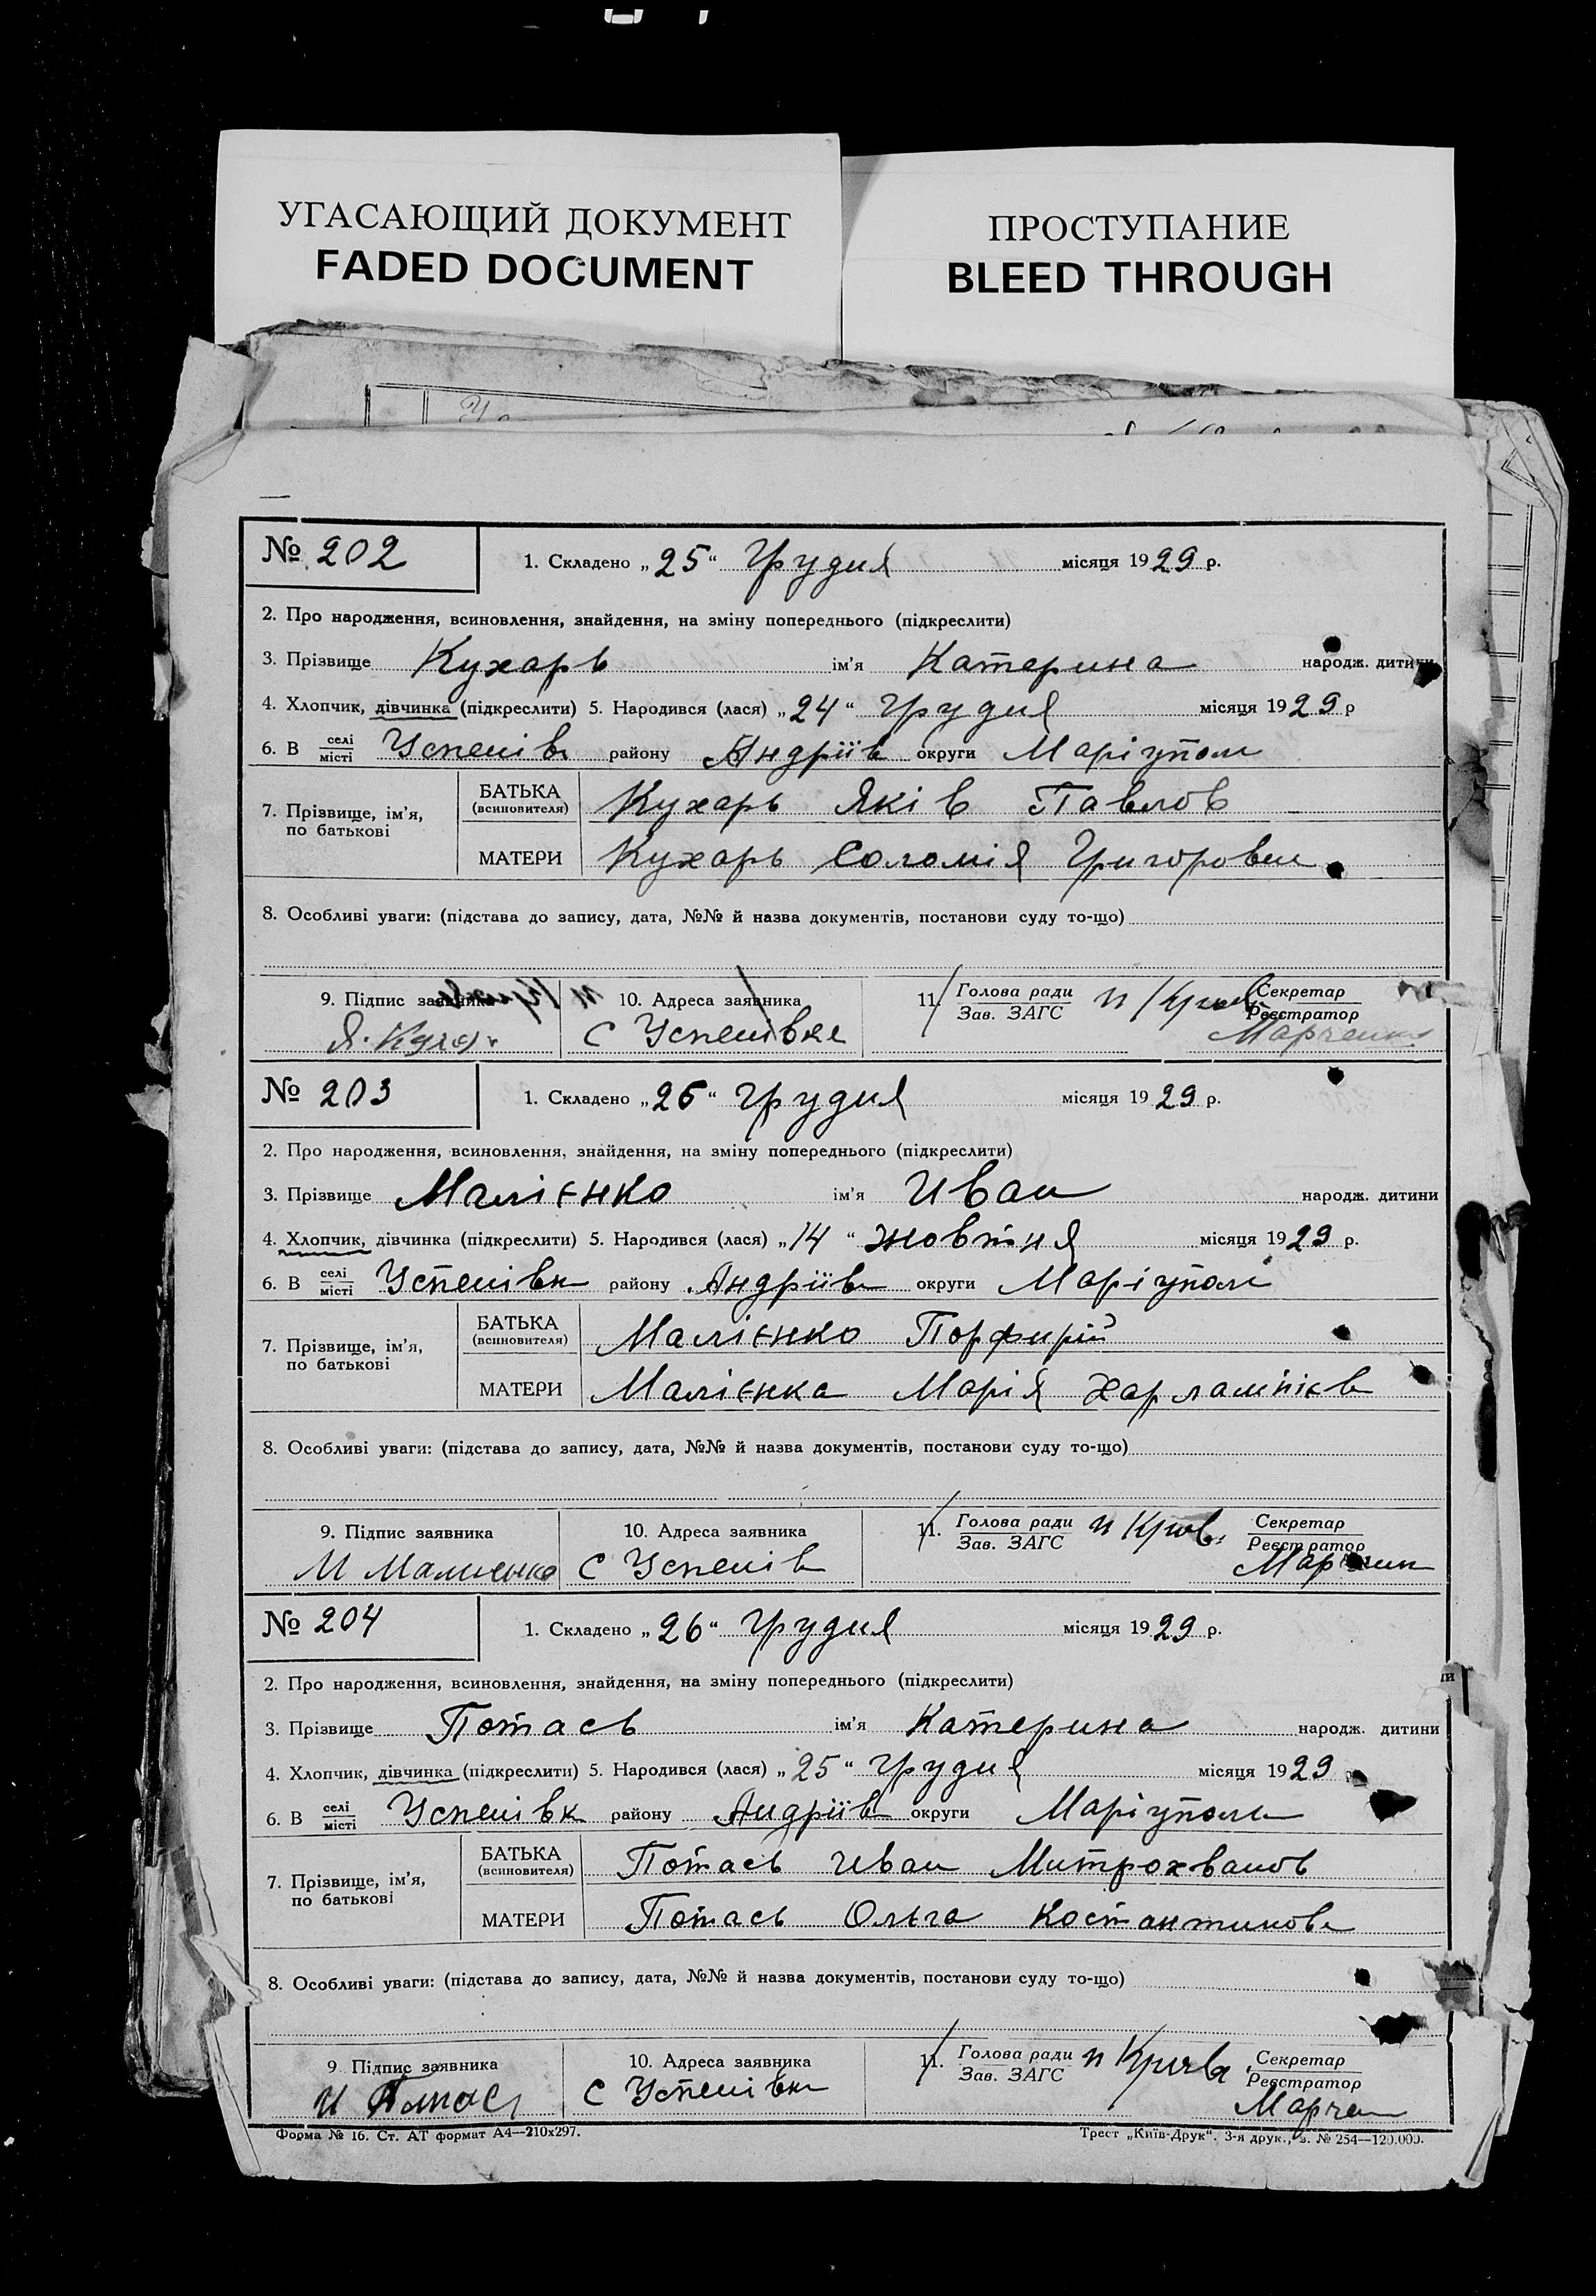 УГАСАЮЩИЙ ДОКУМЕНТ
FADED DOCUMENT
ПРОСТУПАНИЕ
BLEED THROUGH
№ 202 1. Складено „25“ грудня місяця 1929 р.
2. Про народження, всиновлення, знайдення, на зміну попереднього (підкреслити)
3. Прізвище Кухарь ім'я Катерина народж. дитини
4. Хлопчик, дівчинка (підкреслити) 5. Народився (лася) „24“ грудня місяця 1929 р
6. В селі місті Успенівк району Андріїв округи Маріуполь
7. Прізвище, ім'я, по батькові
БАТЬКА (всиновителя) Кухарь Яків Павлов
МАТЕРИ Кухарь Соломія Григоровн
8. Особливі уваги: (підстава до запису, дата, №№ й назва документів, постанови суду то-що)
9. Підпис заявника 10. Адреса заявника 11. Голова ради Зав. ЗАГС Секретар Реєстратор
Я. Кухарь С Успенівке Марченко
№ 203 1. Складено „26“ грудня місяця 1929 р.
2. Про народження, всиновлення, знайдення, на зміну попереднього (підкреслити)
3. Прізвище Малієнко ім'я Иван народж. дитини
4. Хлопчик, дівчинка (підкреслити) 5. Народився (лася) „14“ жовтня місяця 1929 р.
6. В селі місті Успенівк району Андріїв округи Маріуполь
7. Прізвище, ім'я, по батькові
БАТЬКА (всиновителя) Малієнко Порфирій
МАТЕРИ Малієнка Марія Харлампієв
8. Особливі уваги: (підстава до запису, дата, №№ й назва документів, постанови суду то-що)
9. Підпис заявника 10. Адреса заявника 11. Голова ради Зав. ЗАГС Секретар Реєстратор
М Малиенко С Успенів
№ 204 1. Складено „26“ грудня місяця 1929
2. Про народження, всиновлення, знайдення, на зміну попереднього (підкреслити)
3. Прізвище Потась ім'я Катерина народж. дитини
4. Хлопчик, дівчинка (підкреслити) 5. Народився (лася) „25“ грудня місяця 1929 р
6. В селі місті Успенівк району Андріїв округи Маріуполь
7. Прізвище, ім'я, по батькові
БАТЬКА (всиновителя) Потась Иван Митрохванов
МАТЕРИ Потась Ольга Костантинов
8. Особливі уваги: (підстава до запису, дата, №№ й назва документів, постанови суду то-що)
9 Підпис заявника 10. Адреса заявника 11. Голова ради Зав. ЗАГС Секретар Реєстратор
И Потась С Успенівк Марчен
Форма № 16. Ст. АТ формат А4—210х297. Трест „Київ-Друк“. 3-я друк., з. № 254—120.000.